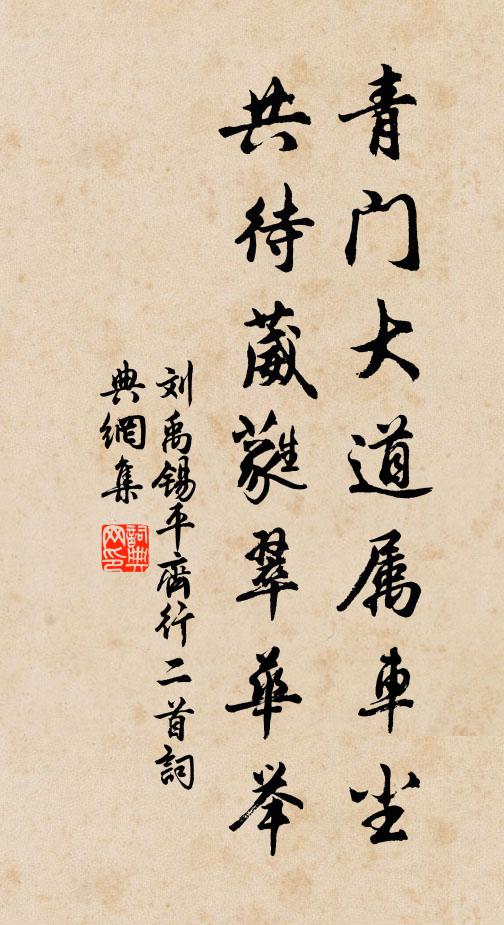 青门大道属车尘
共待葳蕤翠華举
刘禹锡平齊行二首詞
典網集
詞典网印